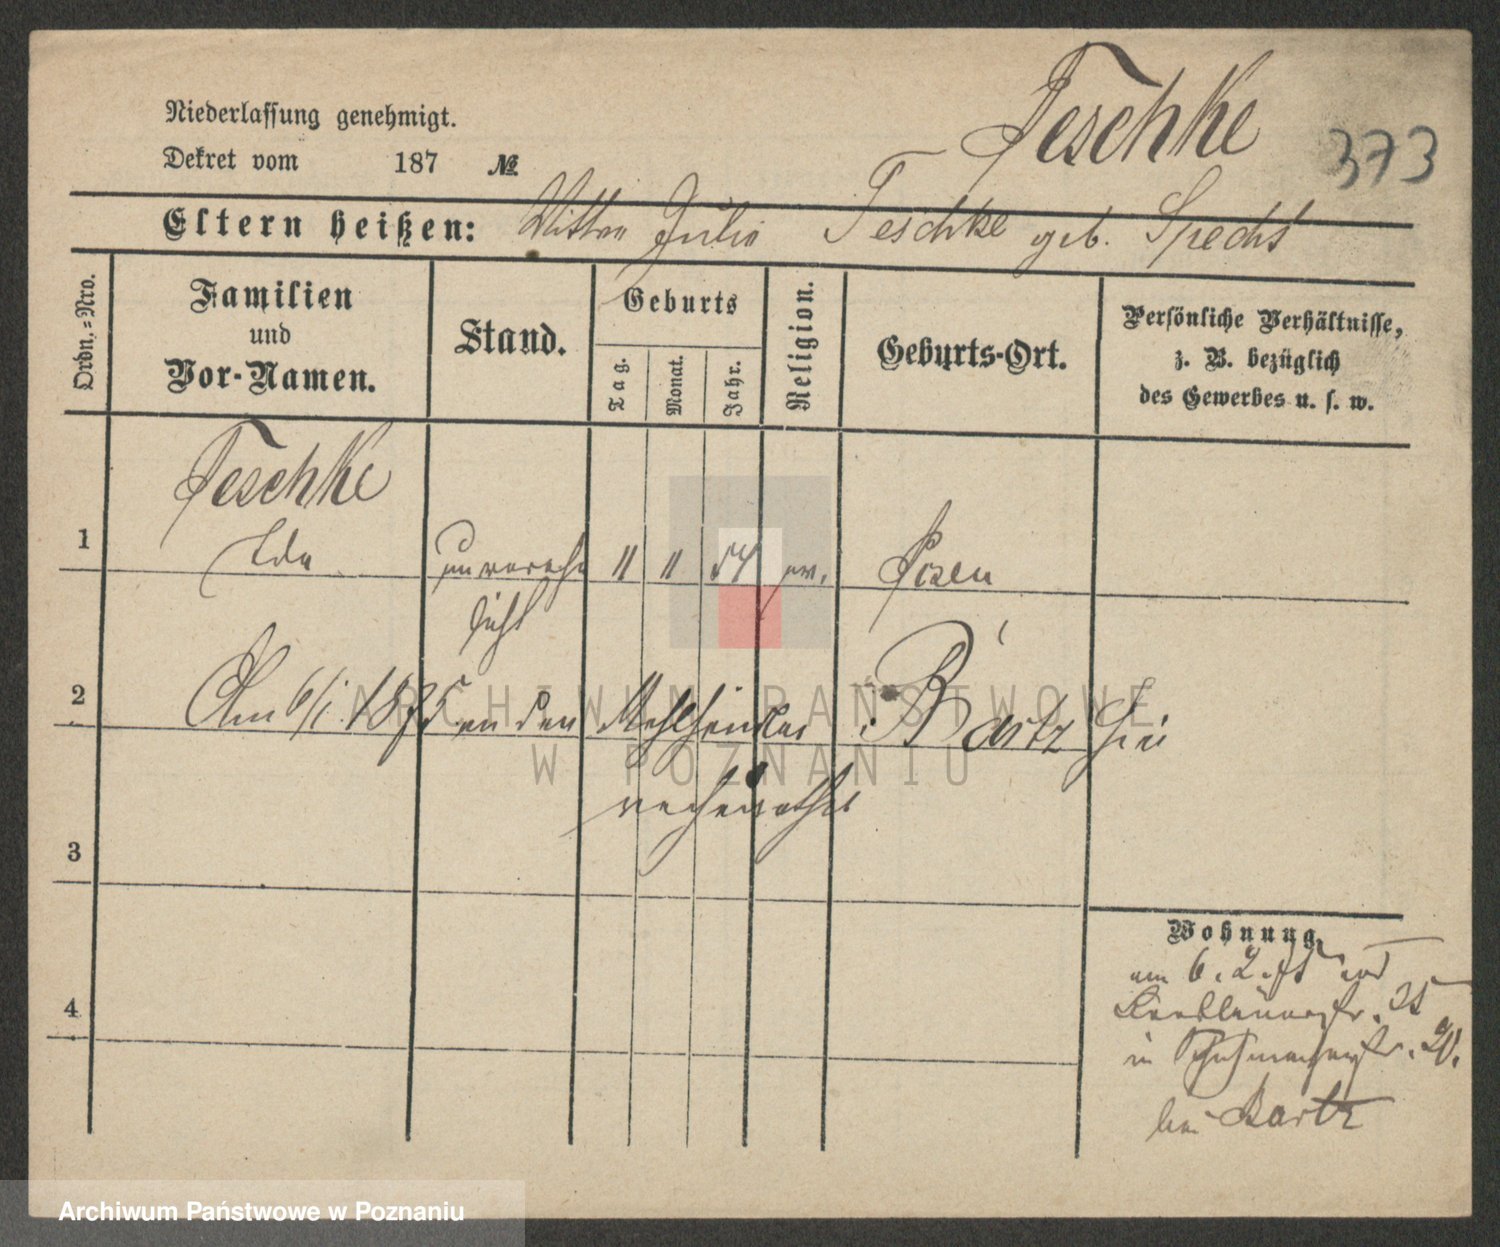 Teschke
373
Niederlassung genehmigt.
Dekret vom 187 №
Eltern heißen: Julie Teschke geb. Specht
Ordn.=Nro.
Familien
und
Vor-Namen.
Stand.
Geburts
Tag.
Monat.
Jahr.
Religion.
Geburts-Ort.
Persönliche Verhältnisse,
z. B. bezüglich
des Gewerbes u. s. w.
Teschke
1 Ida unverehe 11 11 54 ev. Posen
licht
2 Am 6/1. 1875 an den Mehlhändler Bartz hier
verheirathet
3
Wohnung.
am 6. 2. 75 von
25
4
in Schuhmacherstr. 20.
bei Bartz
ARCHIWUM PAŃSTWOWE
W POZNANIU
Archiwum Państwowe w Poznaniu